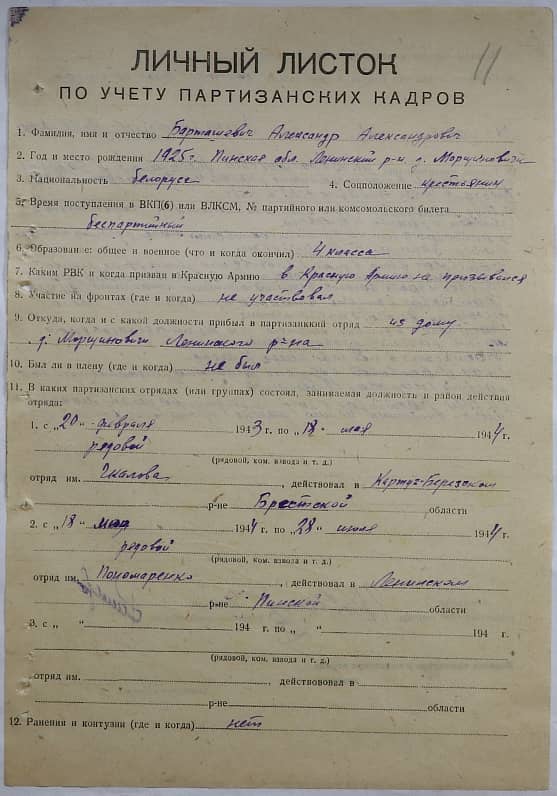 11
ЛИЧНЫЙ ЛИСТОК
ПО УЧЕТУ ПАРТИЗАНСКИХ КАДРОВ
1. Фамилия, имя и отчество Барташевич Александр Александрович
2. Год и место рождения 1925г. Пинская обл. Ленинский р-н д. Морщиновичи
3. Национальность белорусс 4. Соцположение крестьянин
5. Время поступления в ВКП(б) или ВЛКСМ, № партийного или комсомольского билета
беспартийный
6. Образование: общее и военное (что и когда окончил) 4 класса
7. Каким РВК и когда призван в Красную Армию в Красную Армию не призывался
8. Участие на фронтах (где и когда) не участвовал
9. Откуда, когда и с какой должности прибыл в партизанкий отряд из дому
д. Морщиновичи Ленинского р-на
10. Был ли в плену (где и когда) не был
11. В каких партизанских отрядах (или группах) состоял, занимаемая должность и район действия
отряда:
1. с „20“ февраля 1943 г. по „18“ мая 1944 г.
рядовой
(рядовой, ком. взвода и т. д.)
отряд им. Чкалова, действовал в Картуз-Березском
р-не Брестской области
2. с „18“ мая 1944 г. по „28“ июля 1944 г.
рядовой
(рядовой, ком. взвода и т. д.)
отряд им. Пономаренко, действовал в Ленинском
р-не Пинской области
3. с „ “ 194 г. по „ “ 194 г.
(рядовой, ком. взвода и т. д.)
отряд им. , действовал в
р-не области
12. Ранения и контузии (где и когда) нет